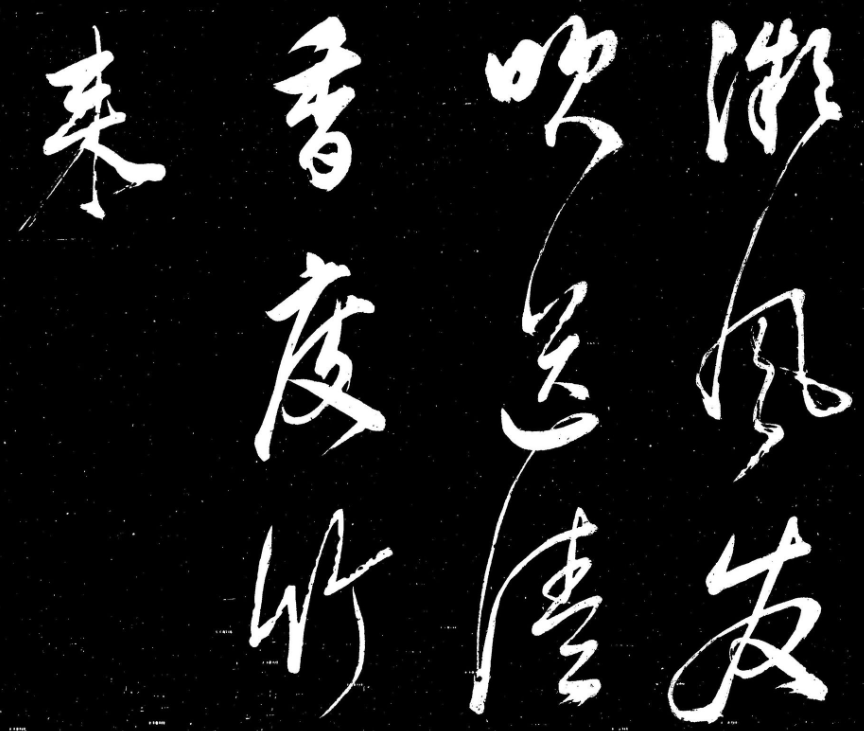 微風友
吹送清
香度竹
来